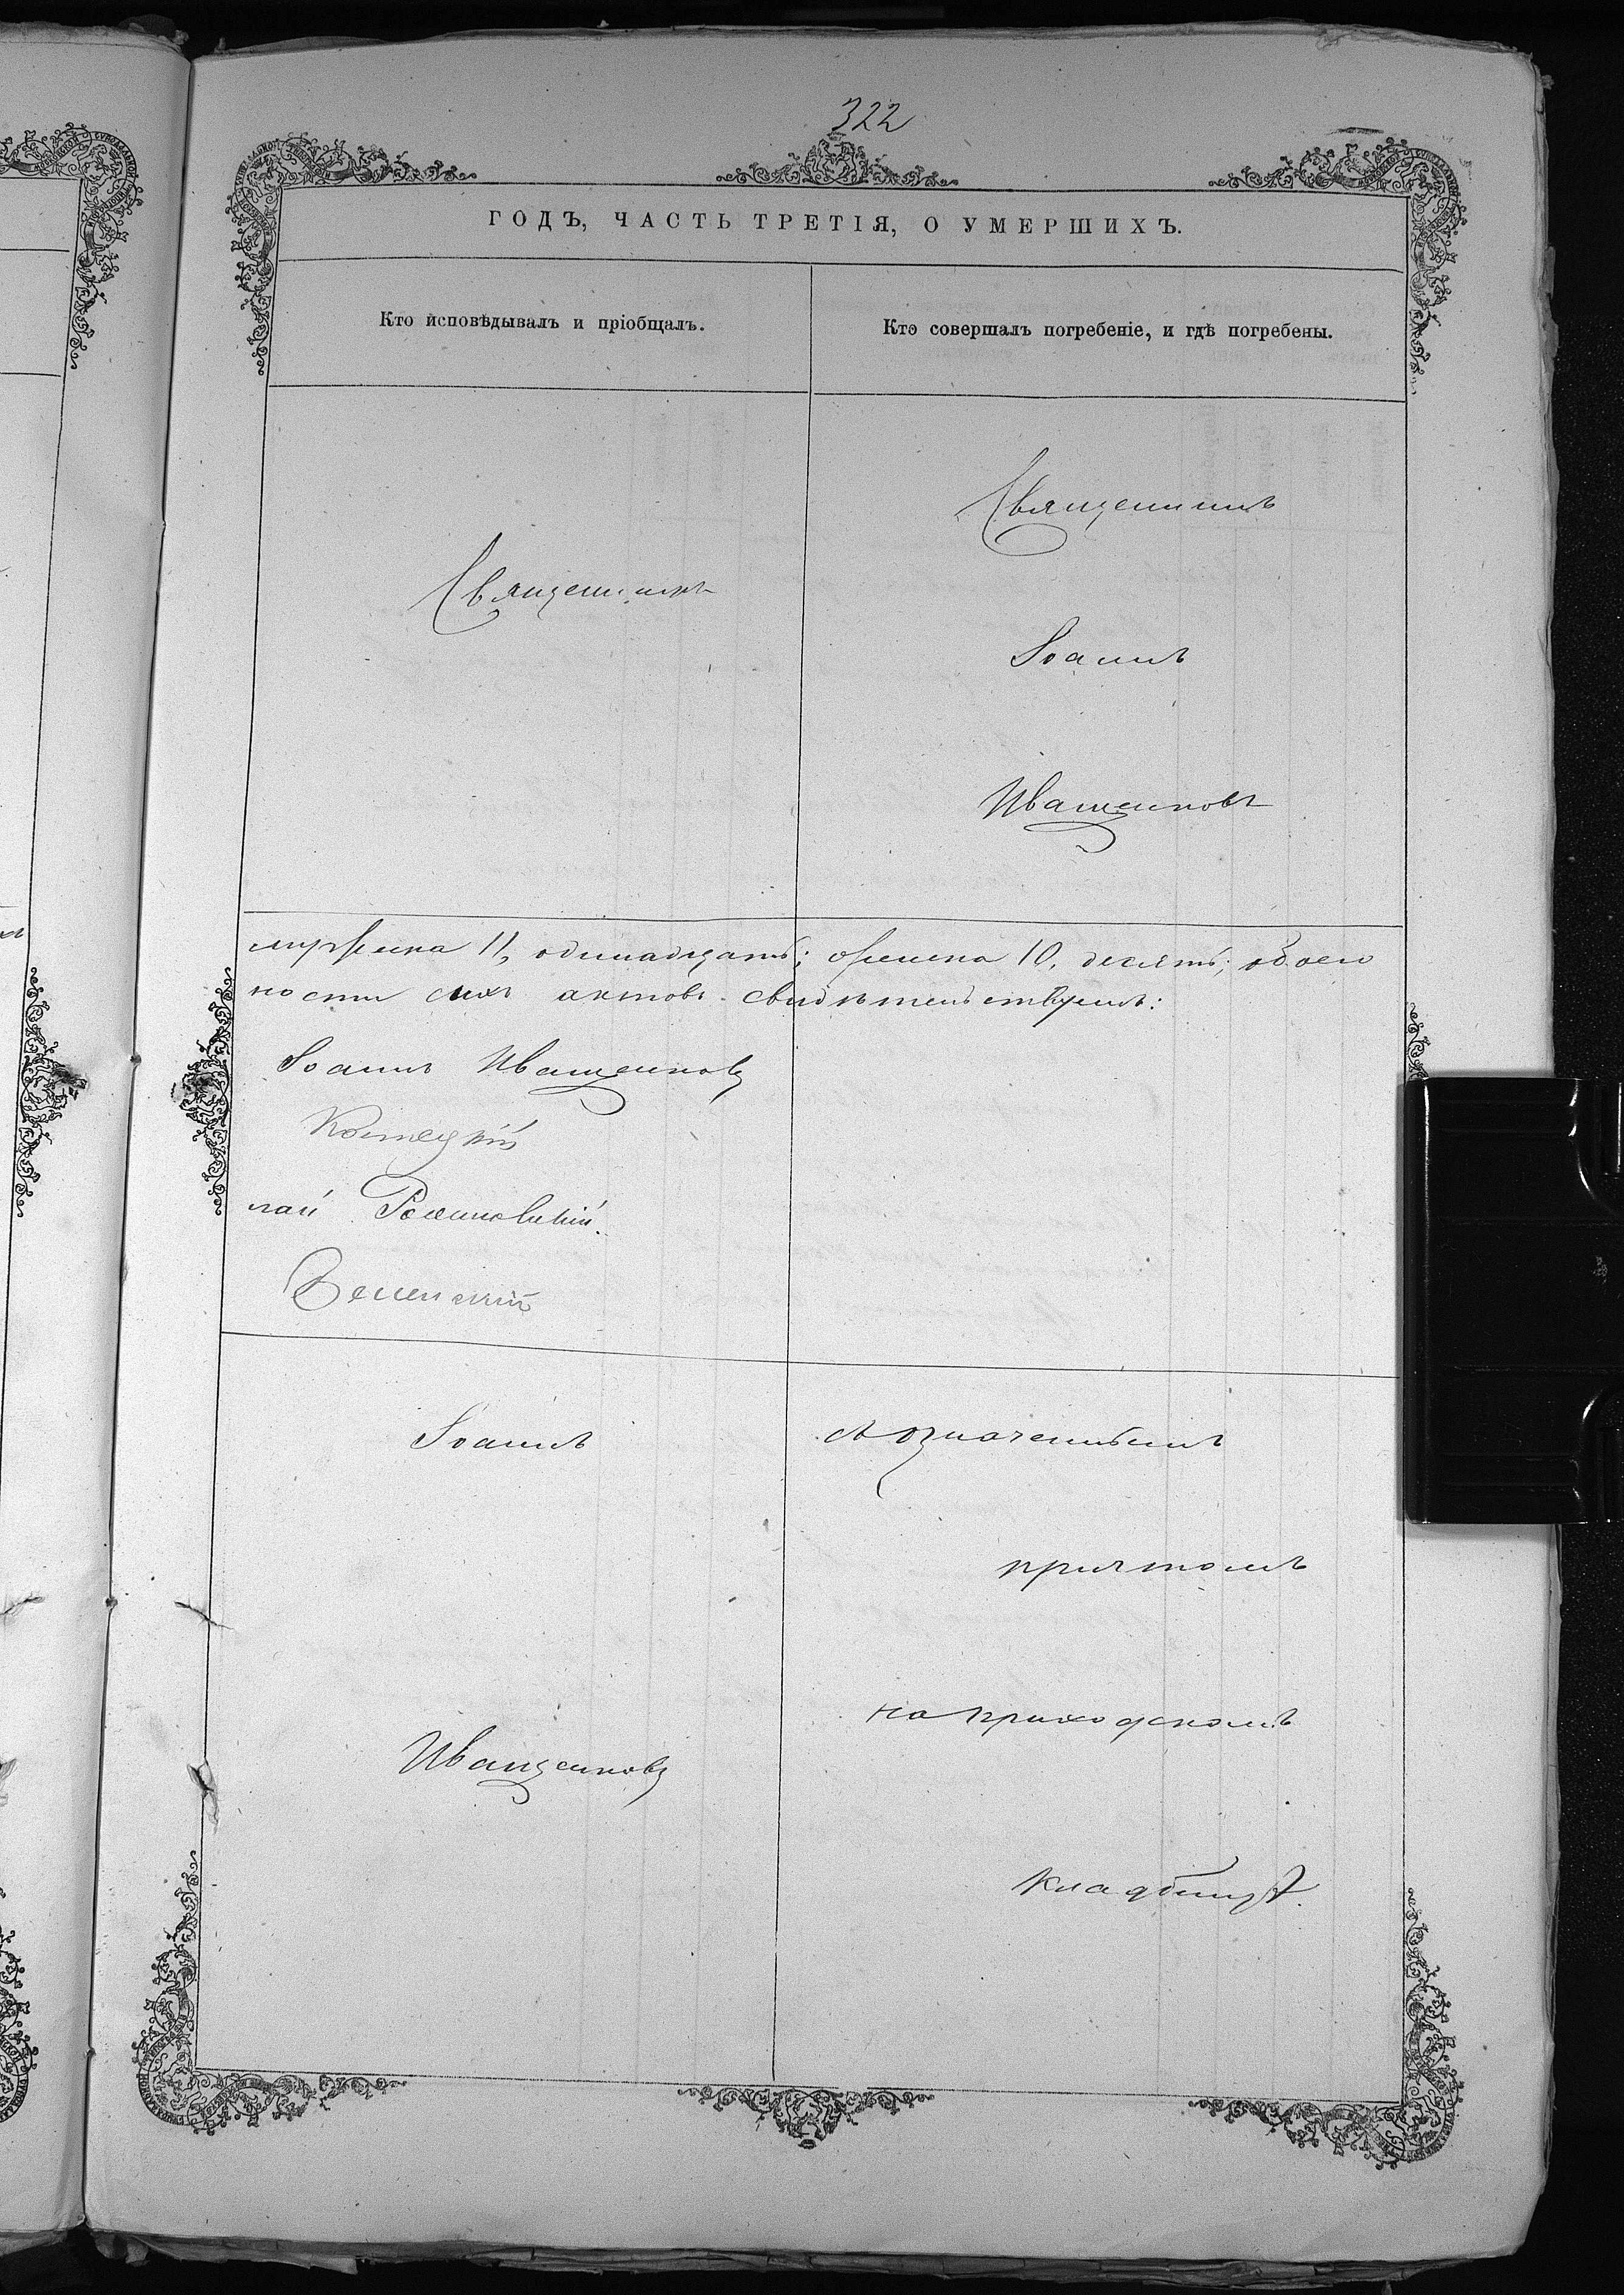 322
ГОДЪ, ЧАСТЬ ТРЕТІЯ, О УМЕРШИХЪ.
Кто исповѣдывалъ и пріобщалъ.
Кто совершалъ погребеніе, и гдѣ погребены.
Священникъ
Священникъ
Іоаннъ
Иващенковъ
мужеска 11, одинадцать; женска 10, десять; обоего
ности сихъ актовъ свидѣтельствуемъ:
Іоаннъ Иващенковъ
лай
Іоаннъ
Иващенковъ
съ означеннымъ
причтомъ
на приходскомъ
кладбищѣ.